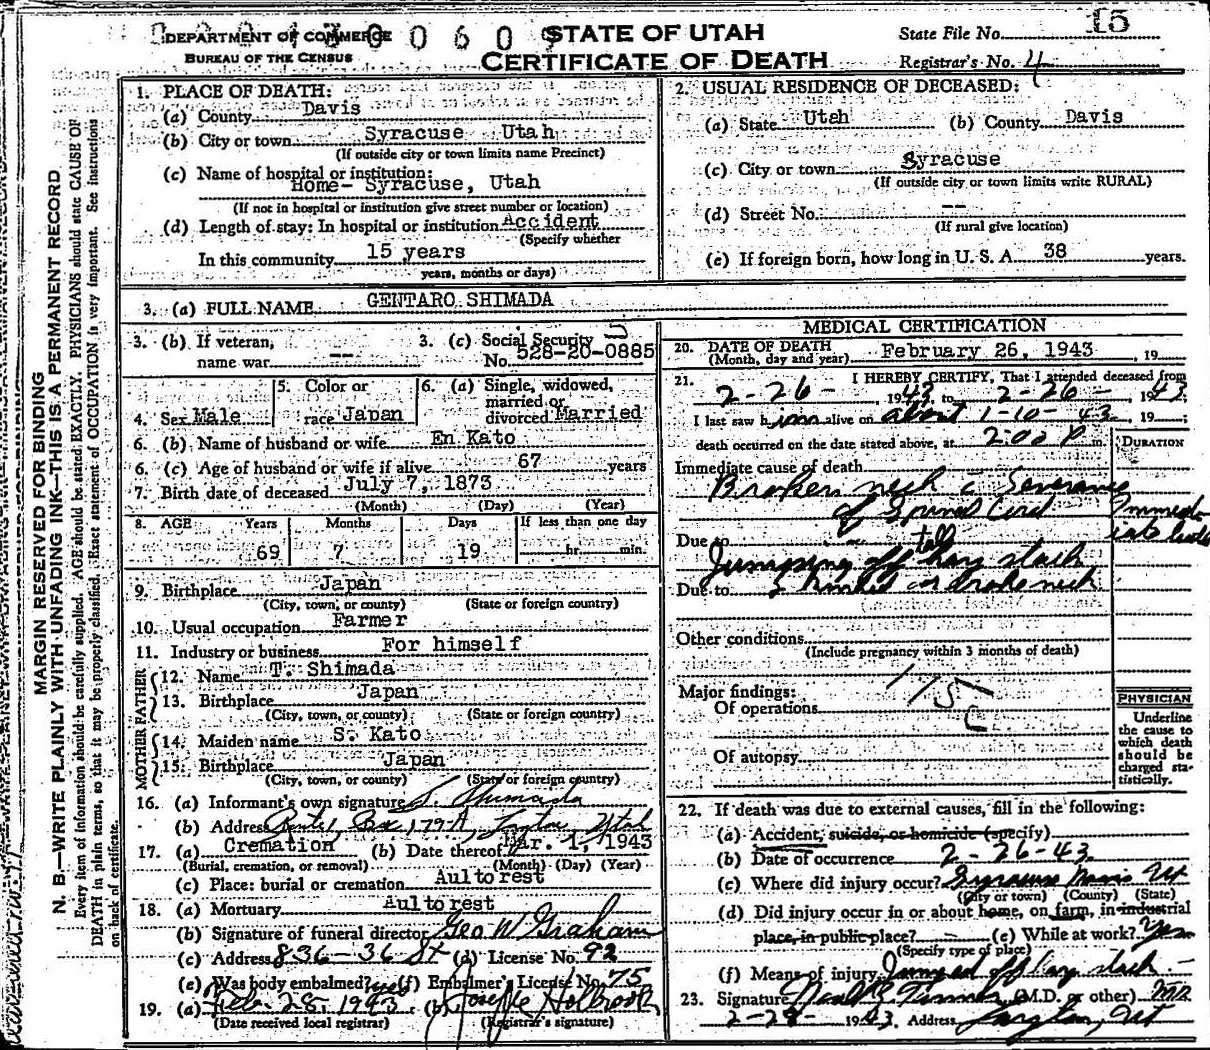 DEPARTMENT OF COMMERCE
BUREAU OF THE CENSUS
STATE OF UTAH
CERTIFICATE OF DEATH
State File No. 15
Registrar's No. 4
MARGIN RESERVED FOR BINDING
N. B.—WRITE PLAINLY WITH UNFADING INK—THIS IS A PERMANENT RECORD
Every item of information should be carefully supplied. AGE should be stated EXACTLY. PHYSICIANS should state CAUSE OF
DEATH in plain terms, so that it may be properly classified. Exact statement of OCCUPATION is very important. See instructions
on back of certificate.
1. PLACE OF DEATH:
(a) County Davis
(b) City or town Syracuse Utah
(If outside city or town limits name Precinct)
(c) Name of hospital or institution:
Home- Syracuse, Utah
(If not in hospital or institution give street number or location)
(d) Length of stay: In hospital or institution Accident
(Specify whether
In this community 15 years
years, months or days)
2. USUAL RESIDENCE OF DECEASED:
(a) State Utah (b) County Davis
(c) City or town Syracuse
(If outside city or town limits write RURAL)
(d) Street No. --
(If rural give location)
(e) If foreign born, how long in U. S. A. 38 years.
3. (a) FULL NAME GENTARO SHIMADA
3. (b) If veteran, name war --
3. (c) Social Security No. 528-20-0885
4. Sex Male
5. Color or race Japan
6. (a) Single, widowed, married or divorced Married
6. (b) Name of husband or wife En Kato
6. (c) Age of husband or wife if alive 67 years
7. Birth date of deceased July 7, 1873
(Month) (Day) (Year)
8. AGE Years Months Days If less than one day
69 7 19 hr. min.
9. Birthplace Japan
(City, town, or county) (State or foreign country)
10. Usual occupation Farmer
11. Industry or business For himself
FATHER
12. Name T. Shimada
13. Birthplace Japan
(City, town, or county) (State or foreign country)
MOTHER
14. Maiden name S. Kato
15. Birthplace Japan
(City, town, or county) (State or foreign country)
16. (a) Informant's own signature S. Shimada
(b) Address Route 1, Box 179-A, Layton, Utah
17. (a) Cremation (b) Date thereof Mar. 1, 1943
(Burial, cremation, or removal) (Month) (Day) (Year)
(c) Place: burial or cremation Aultorest
18. (a) Mortuary Aultorest
(b) Signature of funeral director Geo W Graham
(c) Address 836-36 St (d) License No. 92
(e) Was body embalmed? yes (f) Embalmer's License No. 75
19. (a) Feb. 28, 1943 (b) Holbrook
(Date received local registrar) (Registrar's signature)
MEDICAL CERTIFICATION
20. DATE OF DEATH
(Month, day and year) February 26, 1943, 19
21. I HEREBY CERTIFY, That I attended deceased from
2-26- 1943 to 2-26- 1943;
I last saw him alive on about 1-10-43, 19
death occurred on the date stated above, at 2:00 P m.
DURATION
Immediate cause of death
Broken neck c Severance
of Spinal Cord Immed-
iate death
Due to
Jumping off tall hay stack
Due to & broke neck
Other conditions
(Include pregnancy within 3 months of death)
Major findings:
Of operations
Of autopsy
PHYSICIAN
Underline
the cause to
which death
should be
charged sta-
tistically.
22. If death was due to external causes, fill in the following:
(a) Accident, suicide, or homicide (specify)
(b) Date of occurrence 2-26-43
(c) Where did injury occur? Syracuse Davis Ut
(City or town) (County) (State)
(d) Did injury occur in or about home, on farm, in industrial
place, in public place? (e) While at work? Yes
(Specify type of place)
(f) Means of injury Jumped off hay stack -
23. Signature (M.D. or other) MD
2-28- 1943. Address Layton, Ut